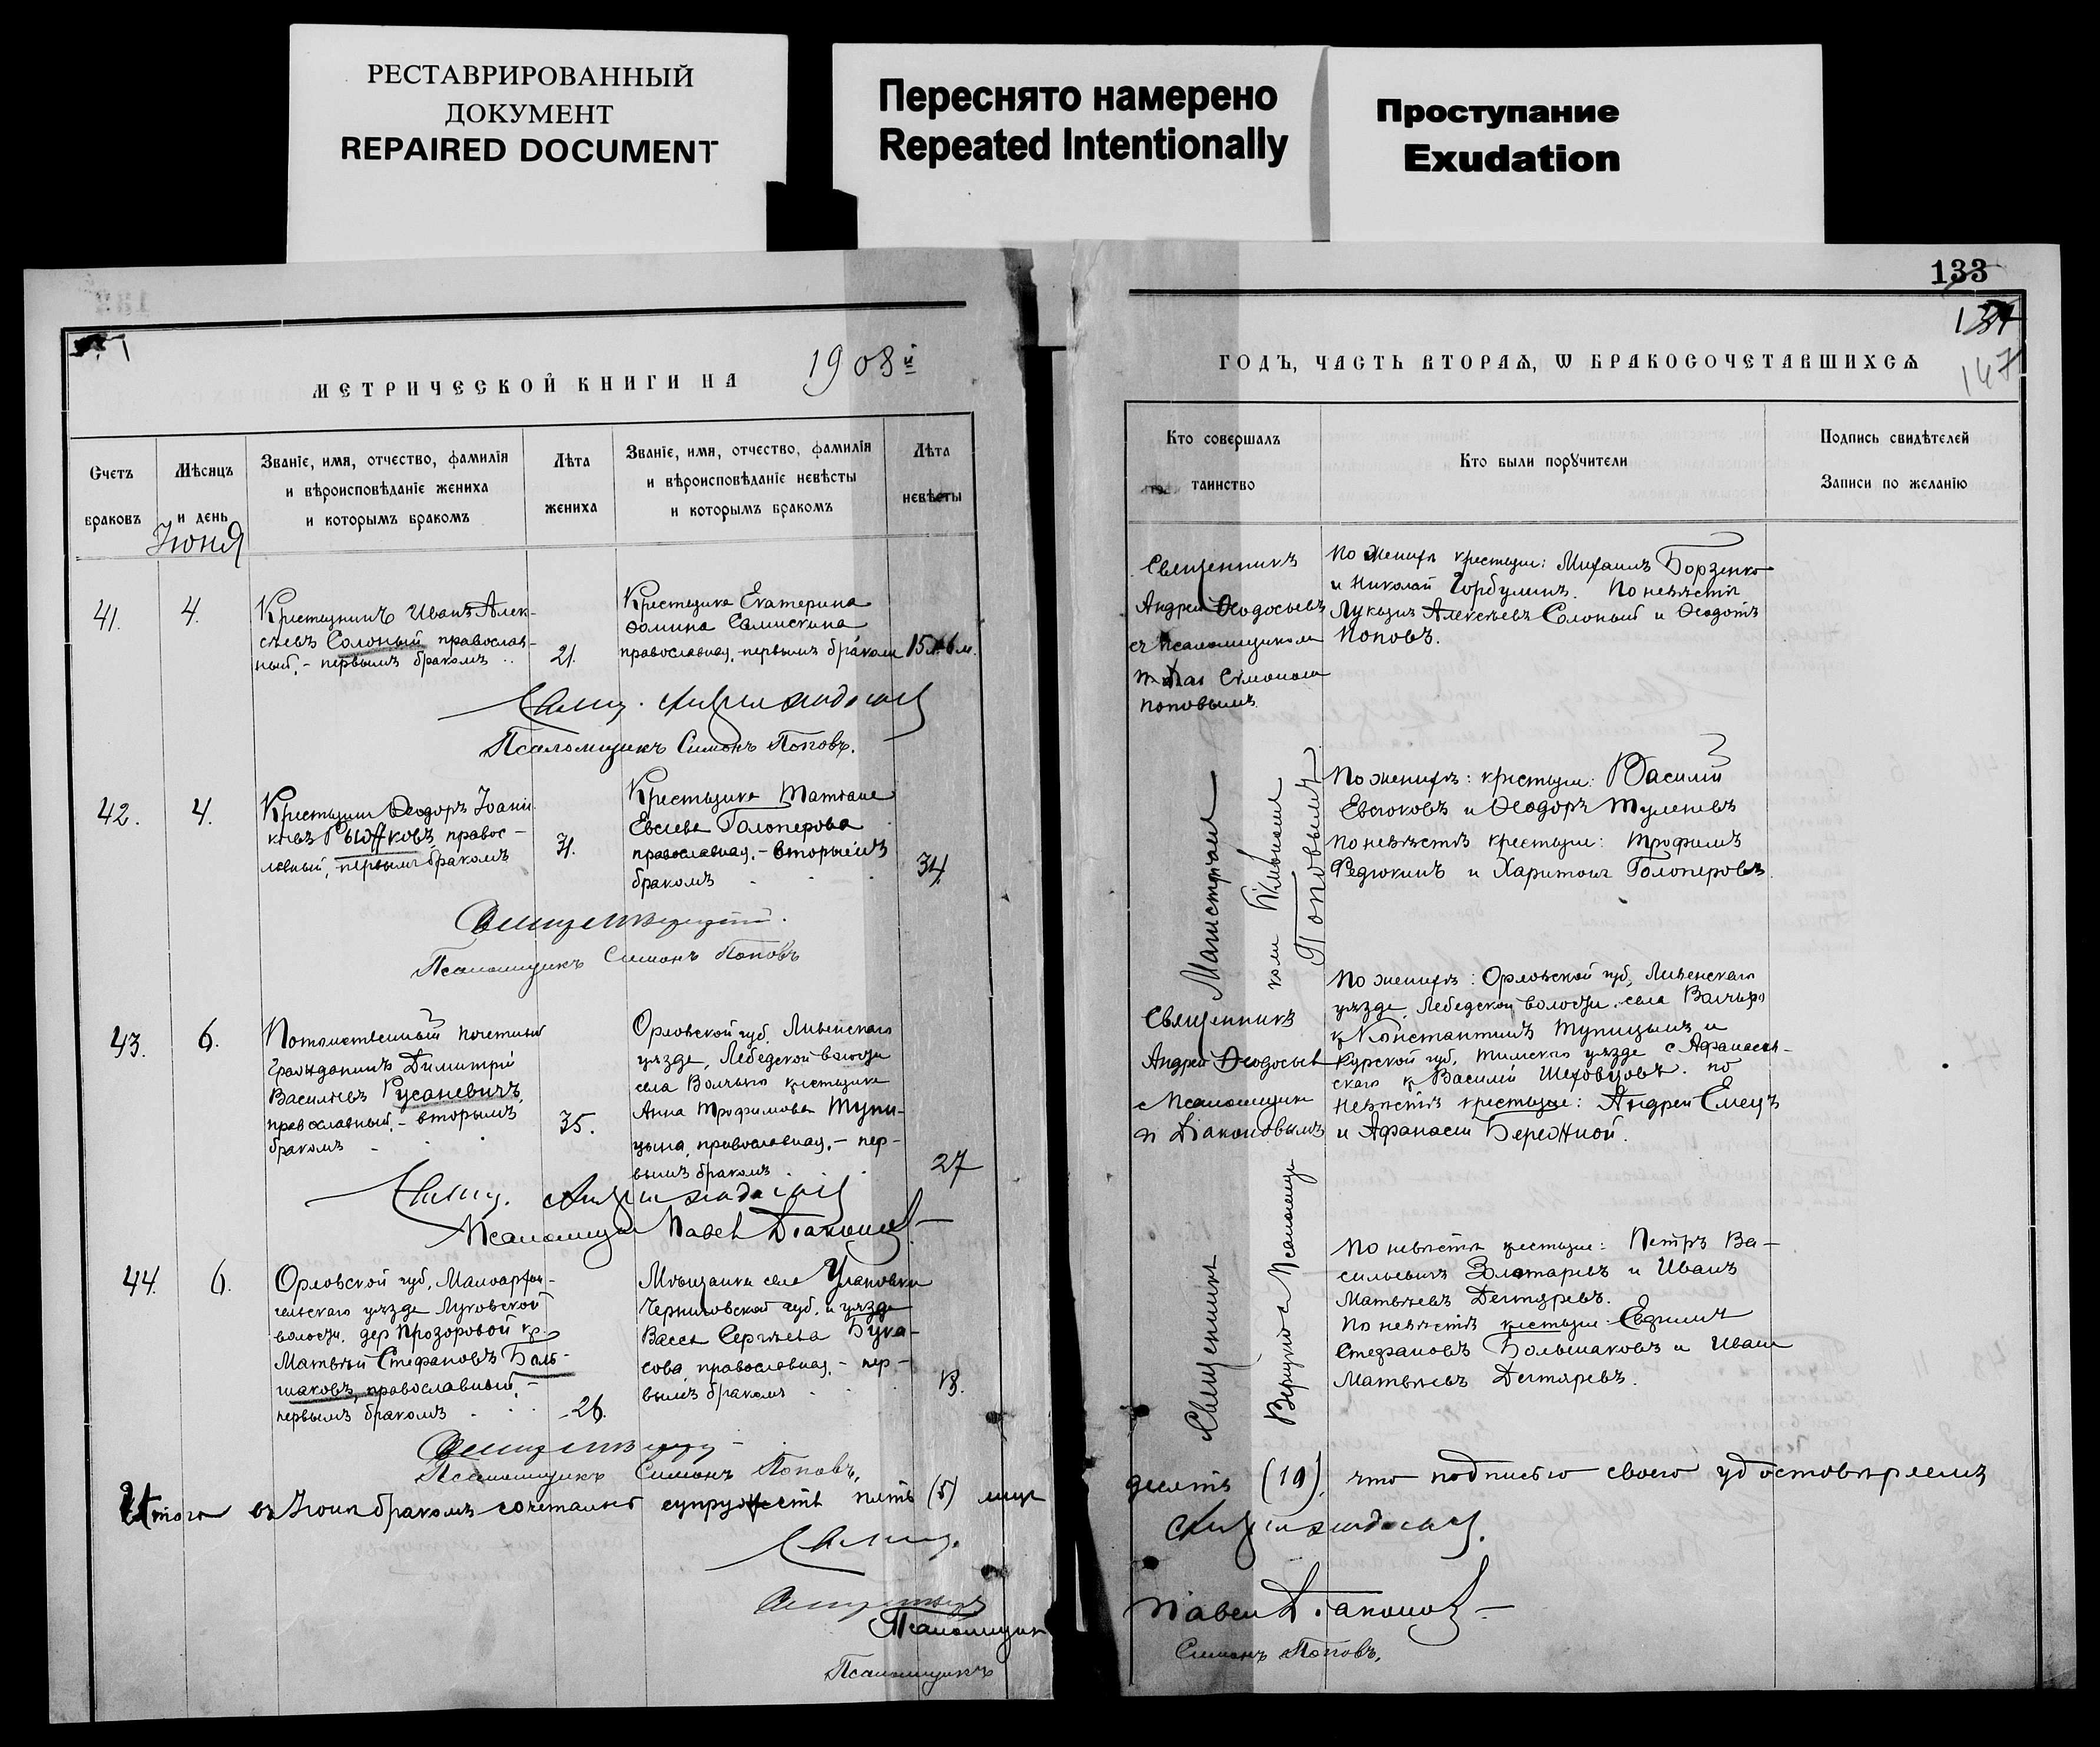 РЕСТАВРИРОВАННЫЙ
ДОКУМЕНТ
REPAIRED DOCUMENT
Переснято намерено
Repeated Intentionally
Проступание
Exudation
МЕТРИЧЕСКОЙ КНИГИ НА 1908й
Счетъ
браковъ
Мѣсяцъ
и день
Званіе, имя, отчество, фамилія
и вѣроисповѣданіе жениха
и которымъ бракомъ
Лѣта
жениха
Званіе, имя, отчество, фамилія
и вѣроисповѣданіе невѣсты
и которымъ бракомъ
Лѣта
невѣсты
Іюня
41.
4.
Крестьянинъ Иванъ Алек-
сѣевъ Солоный православ-
ный, - первымъ бракомъ
21.
Крестьянка Екатерина
православная, первымъ бракомъ
15 л. 6 м.
Псаломщикъ Симонъ Поповъ.
42.
4.
Крестьянинъ Ѳеодоръ Іоанни-
кіевъ Рыжковъ, правос-
лавный, первымъ бракомъ
31.
Крестьянка Татіана
Евсеева Голоперова
православная, - вторымъ
бракомъ
34
Псаломщикъ Симонъ Поповъ
43.
6.
Потомственный почетный
гражданинъ Димитрій
Василіевъ Русаневичъ,
православный, - вторымъ
бракомъ
35.
Орловской губ. Ливенскаго
уѣзда, Лебедской волости
села крестьянка
Анна Трофимова Тупи-
цына, православная, - пер-
вымъ бракомъ
27
Псаломщикъ Павел Діаконов
44.
6.
Орловской губ. Малоархан-
гельскаго уѣзда Луковской
волости, дер Прозоровой кр.
Матвѣй Стефановъ Боль-
шаковъ, православный, -
первымъ бракомъ
26.
Мѣщанка села
Черниговской губ. и уѣзда
Васса Сергѣева
православная, - пер-
вымъ бракомъ
18.
Псаломщикъ Симонъ Поповъ,
Итого въ Іюнѣ бракомъ сочетались супружествъ пять (5) лицъ
Псаломщик
Псаломщикъ
133
147
ГОДЪ, ЧАСТЬ ВТОРАЯ, Ѡ БРАКОСОЧЕТАВШИХСЯ
Кто совершалъ
таинство
Кто были поручители
Подпись свидѣтелей
Записи по желанію
Священникъ
Андрей Ѳеодосьевъ
съ псаломщикомъ
Симономъ
Поповымъ
По женихѣ крестьяне: Михаилъ Борзенко
и Николай Горбулинъ. По невѣстѣ
Лукьянъ Алексѣевъ Солоный и Ѳеодотъ
Поповъ.
Поповымъ
По женихѣ: крестьяне: Василій
Евсюковъ и Ѳеодоръ Туленевъ
По невѣстѣ крестьяне: Трофимъ
Федюкинъ и Харитонъ Голоперовъ.
Священникъ
Андрей Ѳеодосьев
с псаломщик
Діаконовымъ
По женихѣ: Орловской губ, Ливенскаго
уѣзда, Лебедской волости, села
кр Константинъ Тупицынъ и
Курской губ, Тимскаго уѣзда с Афанасьев-
скаго кр Василій Шеховцовъ. по
невѣстѣ крестьяне: Андрей Емецъ
и Афанасій Бережной.
Священникъ
Верицкій с Псаломщи
По невѣстѣ крестьяне: Петръ Ва-
сильевичъ Золотаревъ и Иванъ
Матвѣевъ Дегтяревъ.
По невѣстѣ крестьяне:
Стефановъ Большаковъ и Иванъ
Матвѣевъ Дегтяревъ.
десять (10), что подписью своею удостовѣряемъ
Павел Діаконов
Симонъ Поповъ,